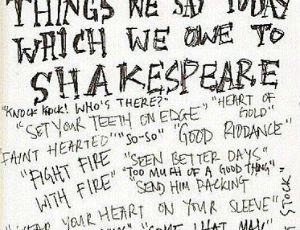 THINGS WE SAY TODAY
WHICH WE OWE TO
SHAKESPEARE
"KNOCK KNOCK! WHO'S THERE?" "HEART OF GOLD"
"SET YOUR TEETH ON EDGE"
FAINT HEARTED" "SO-SO" "GOOD RIDDANCE"
"FIGHT FIRE WITH FIRE"
"SEEN BETTER DAYS"
"TOO MUCH OF A GOOD THING"
SEND HIM PACKING
YOUR HEART ON YOUR SLEEVE"
STOCK